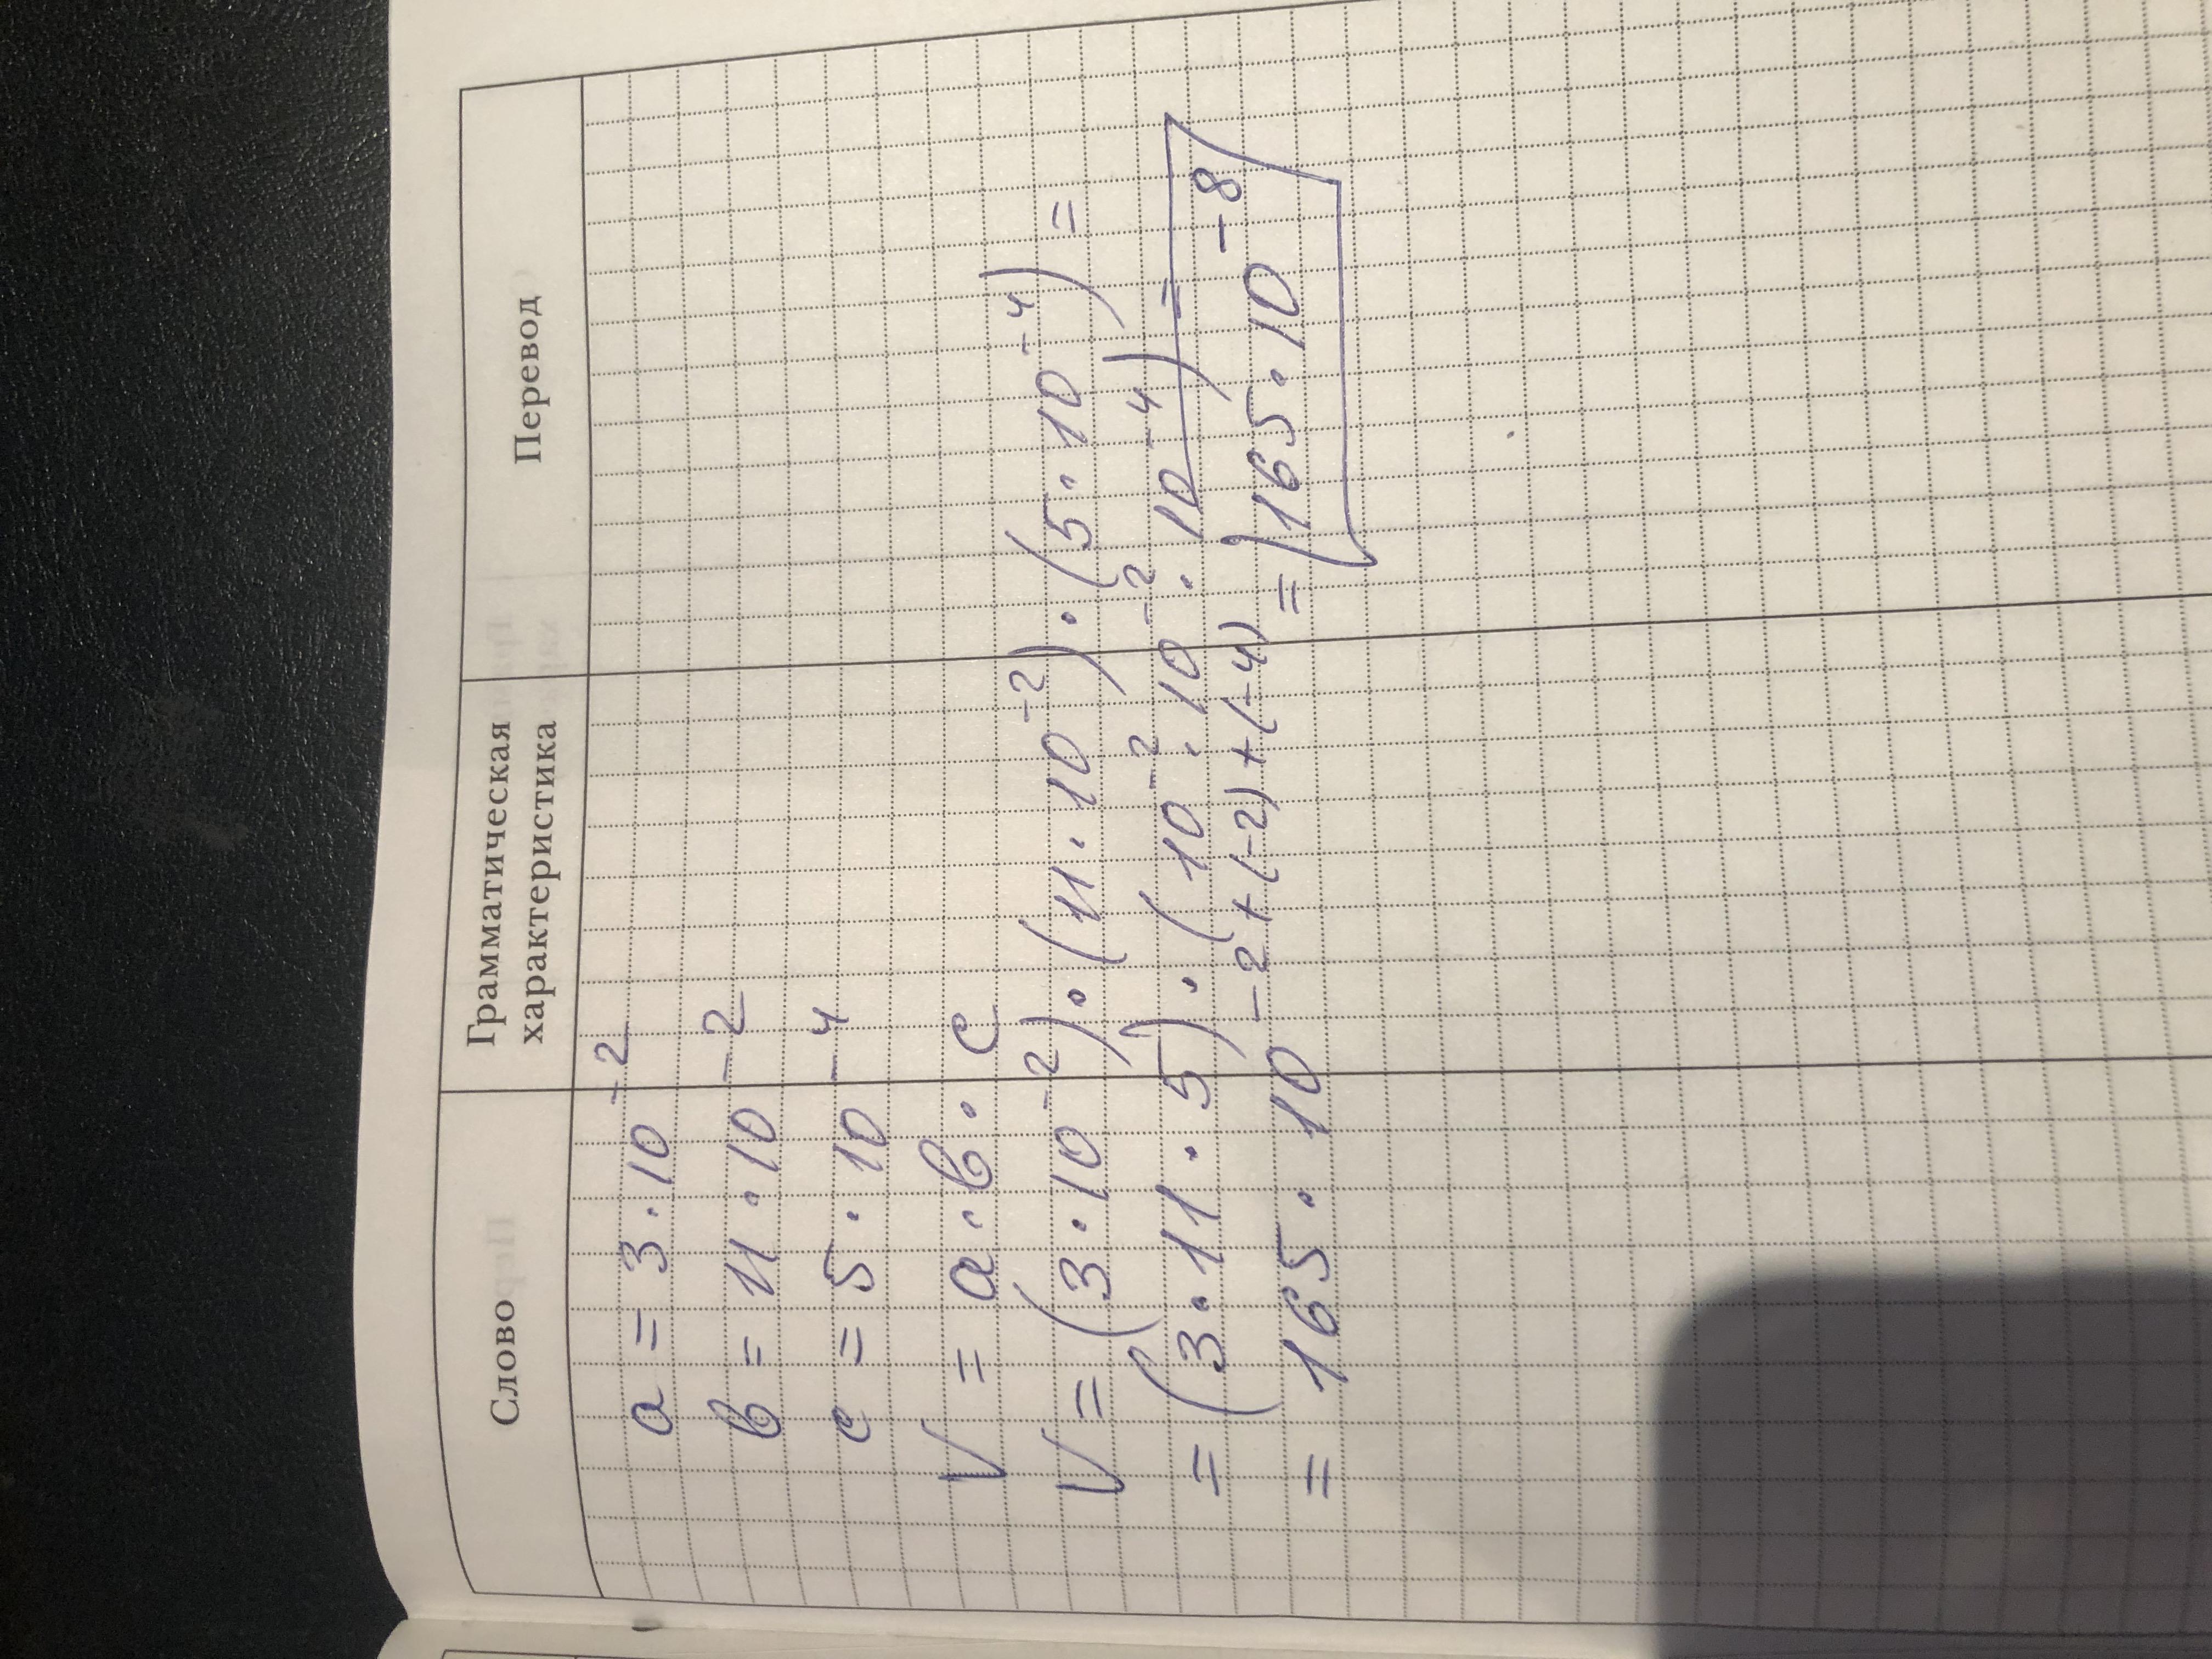 Слово Грамматическая характеристика Перевод
a = 3 · 10⁻²
b = 11 · 10⁻²
c = 5 · 10⁻⁴
V = a · b · c
V = (3 · 10⁻²) · (11 · 10⁻²) · (5 · 10⁻⁴) =
= (3 · 11 · 5) · (10⁻² · 10⁻² · 10⁻⁴) =
= 165 · 10⁻²⁺⁽⁻²⁾⁺⁽⁻⁴⁾ = 165 · 10⁻⁸